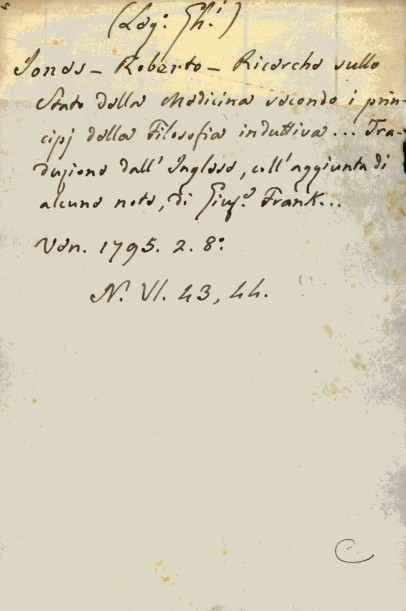 (Lag: Gh:)
Jones - Roberto - Ricerche sullo
Stato della Medicina secondo i prin-
cipj della Filosofia induttiva... Tra-
duzione dall' Inglese, coll'aggiunta di
alcune note, di Gius. Frank...
Ven. 1795. 2. 8:
N. VI. 43, 44.
C